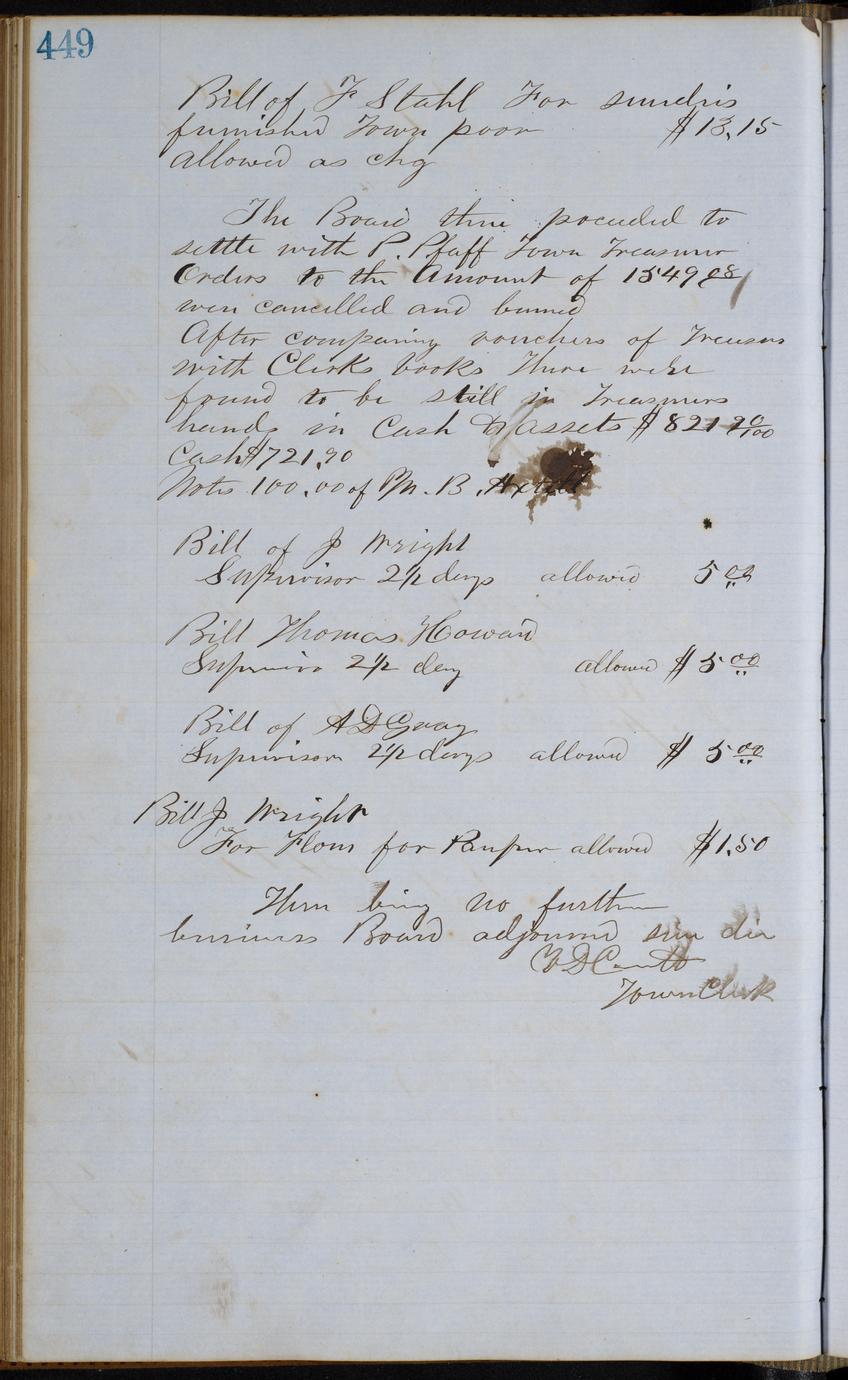 449
Bill of F Stahl For sundris
furnished Town poor $13.15
allowed as chg
The Board then proceeded to
settle with P. Pfaff Town Treasurer
Orders to the Amount of 1549 08
were cancelled and burned
After comparing vouchers of Treasurs
with Clerks books There were
found to be still in Treasurers
hands in Cash & assets $821 90/100
Cash $721.90
Notes 100.00 of M. B. Axtell
Bill of J Wright
Supervisor 2 1/2 days allowed 5 00
Bill Thomas Howard
Supervisor 2 1/2 day allowed $5 00
Bill of A D Gray
Supervisor 2 1/2 days allowed $5 00
Bill J Wright
For Flour for Pauper allowed $1.50
There being no further
business Board adjourned sine die
Town Clerk